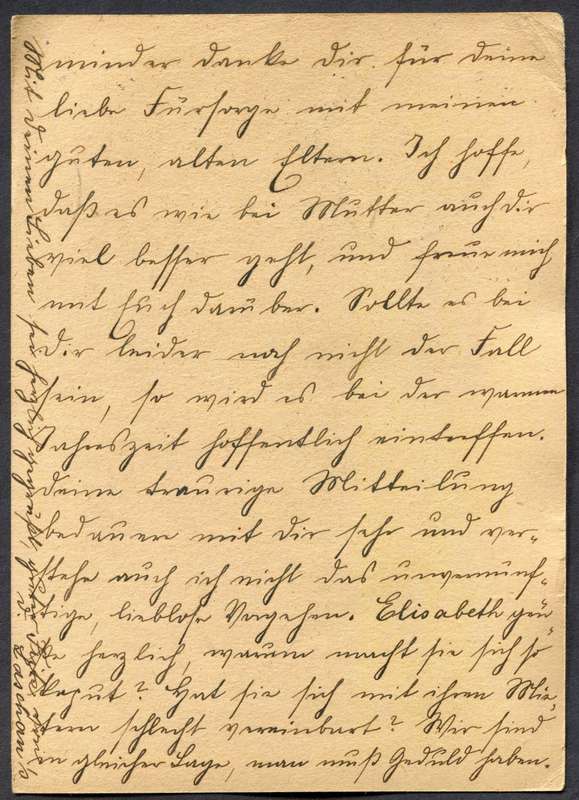 minder danke dir für deine
liebe Fürsorge mit meinen
guten, alten Eltern. Ich hoffe,
daß es wie bei Mutter auch dir
viel besser geht, und freue mich
mit Euch darüber. Sollte es bei
dir leider noch nicht der Fall
sein, so wird es bei der warmen
Jahreszeit hoffentlich eintreffen.
Deine traurige Mitteilung
bedauere mit dir sehr und ver-
stehe auch ich nicht das unvernünf-
tige, lieblose Vorgehen. Elisabeth grü-
ße herzlich, warum macht sie sich so
kaput? Hat sie sich mit ihren Mie-
tern schlecht vereinbart? Wir sind
in gleicher Lage, man muß Geduld haben.
Mit deinen Lieben sei herzlich gegrüßt,